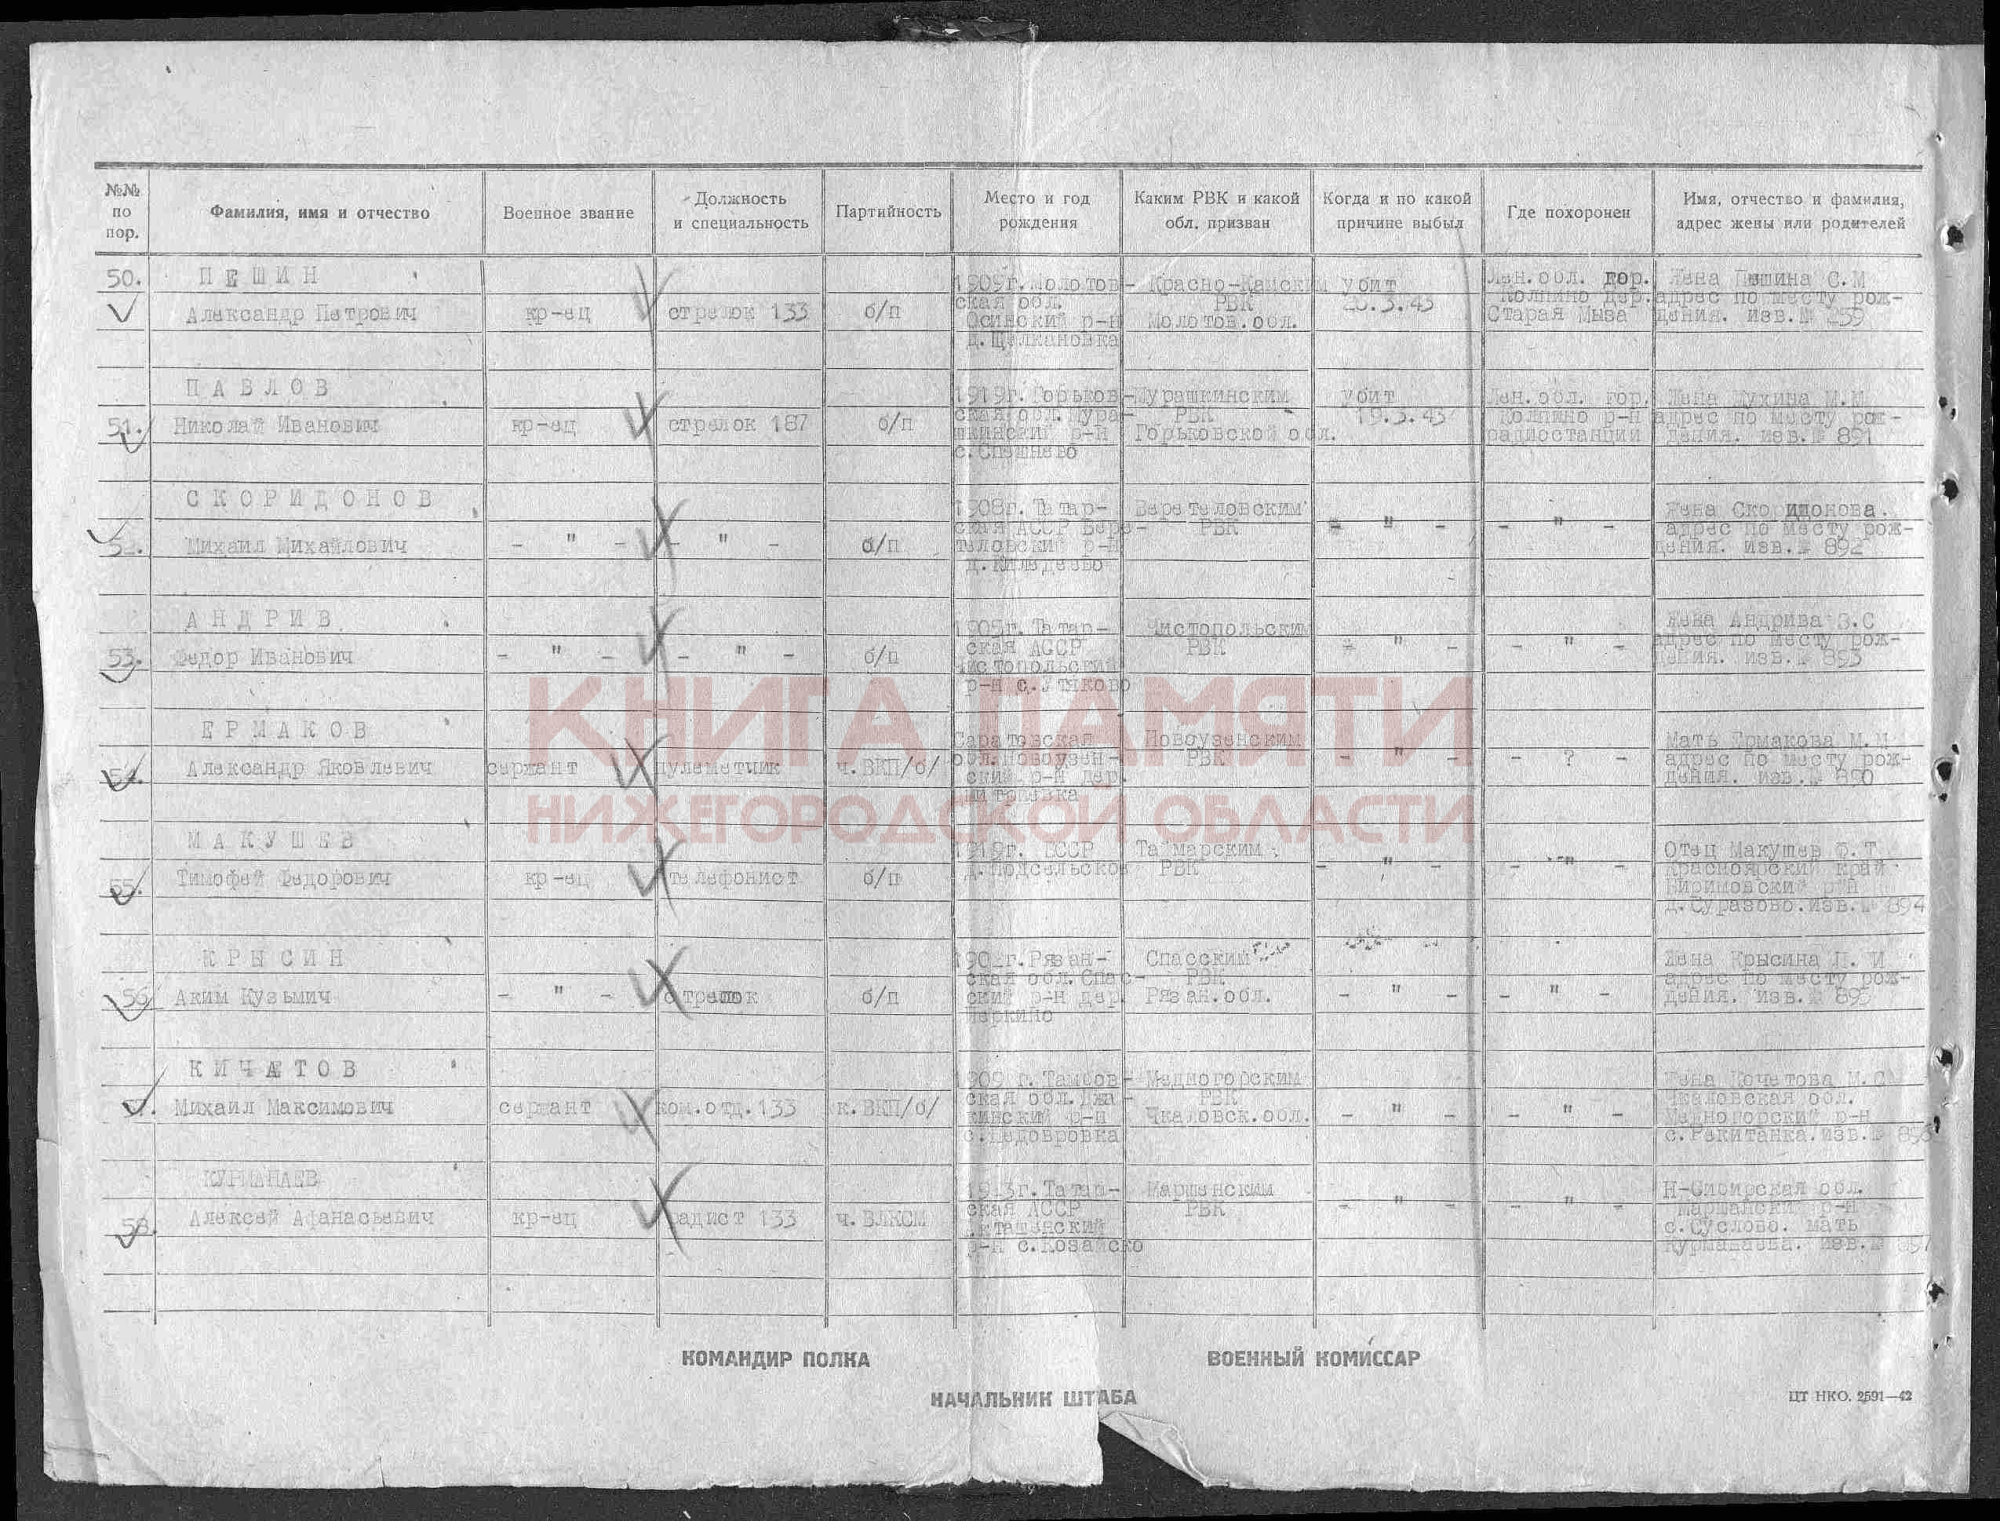 №№
по
пор.
Фамилия, имя и отчество
Военное звание
Должность
и специальность
Партийность
Место и год
рождения
Каким РВК и какой
обл. призван
Когда и по какой
причине выбыл
Где похоронен
Имя, отчество и фамилия,
адрес жены или родителей
50.
ПЕШИН
Александр Петрович
кр-ец
стрелок 133
б/п
1909г. Молотов-
ская обл.
Осинский р-н
д. Щелкановка
Красно-Камским
РВК
Молотов.обл.
убит
Лен.обл. гор.
Колпино дер.
Старая Мыза
Жена Пешина С.М
адрес по месту рож-
дения. изв.№ 259
51.
ПАВЛОВ
Николай Иванович
кр-ец
стрелок 187
б/п
1919г. Горьков-
ская обл. Мура-
шкинский р-н
с.Спешнево
Мурашкинским
РВК
Горьковской обл.
убит
19.3.43
Лен.обл. гор.
Колпино р-н
радиостанции
Жена Мухина М.М.
адрес по месту рож-
дения. изв.№ 891
52.
СКОРИДОНОВ
Михаил Михайлович
- " -
- " -
б/п
1908г. Татар-
ская АССР Бере-
теловский р-н
Веретеловским
РВК
- " -
- " -
Жена Скоридонова.
адрес по месту рож-
дения. изв.№ 892
53.
АНДРИВ
Федор Иванович
- " -
- " -
б/п
1905г. Татар-
ская АССР
Чистопольский
р-н с.Утяково
Чистопольским
РВК
- " -
- " -
Жена Андрива З.С
адрес по месту рож-
дения. изв.№ 893
54.
ЕРМАКОВ
Александр Яковлевич
сержант
пулеметчик
ч. ВКП/б/
Саратовская
обл.Новоузен-
ский р-н дер.
Новоузенским
РВК
- " -
- ? -
Мать Ермакова М.И
адрес по месту рож-
дения. изв.№ 890
55.
МАКУШЕВ
Тимофей Федорович
кр-ец
телефонист
б/п
1919г. БССР
д.Подсельское
Таймарским
РВК
- " -
- " -
Отец Макушев Ф.Т
Красноярский край
р-н
д.Суразово.изв.№ 894
56.
КРЫСИН
Аким Кузьмич
- " -
стрелок
б/п
Рязан-
ская обл.Спас-
ский р-н дер.
Перкино
Спасский
РВК
Рязан.обл.
- " -
- " -
Жена Крысина П. И
адрес по месту рож-
дения. изв.№ 895
57.
КИЧЕТОВ
Михаил Максимович
сержант
ком.отд.133
к. ВКП/б/
1909 г. Тамбов-
ская обл.
р-н
Медногорским
РВК
Чкаловск.обл.
- " -
- " -
Жена Кочетова М.С
Чкаловская обл.
Медногорский р-н
с.Ракитянка.изв.№
58.
КУРМАНАЕВ
Алексей Афанасьевич
кр-ец
радист 133
ч. ВЛКСМ
1913г. Татар-
ская АССР
Акташенский
р-н с.Козайско
Маршенским
РВК
- " -
- " -
Н-Сибирская обл.
Маршански р-н
с.Суслово. мать
Курманаева. изв.№ 897
КНИГА ПАМЯТИ
НИЖЕГОРОДСКОЙ ОБЛАСТИ
КОМАНДИР ПОЛКА
ВОЕННЫЙ КОМИССАР
НАЧАЛЬНИК ШТАБА
ЦТ НКО. 2591—42